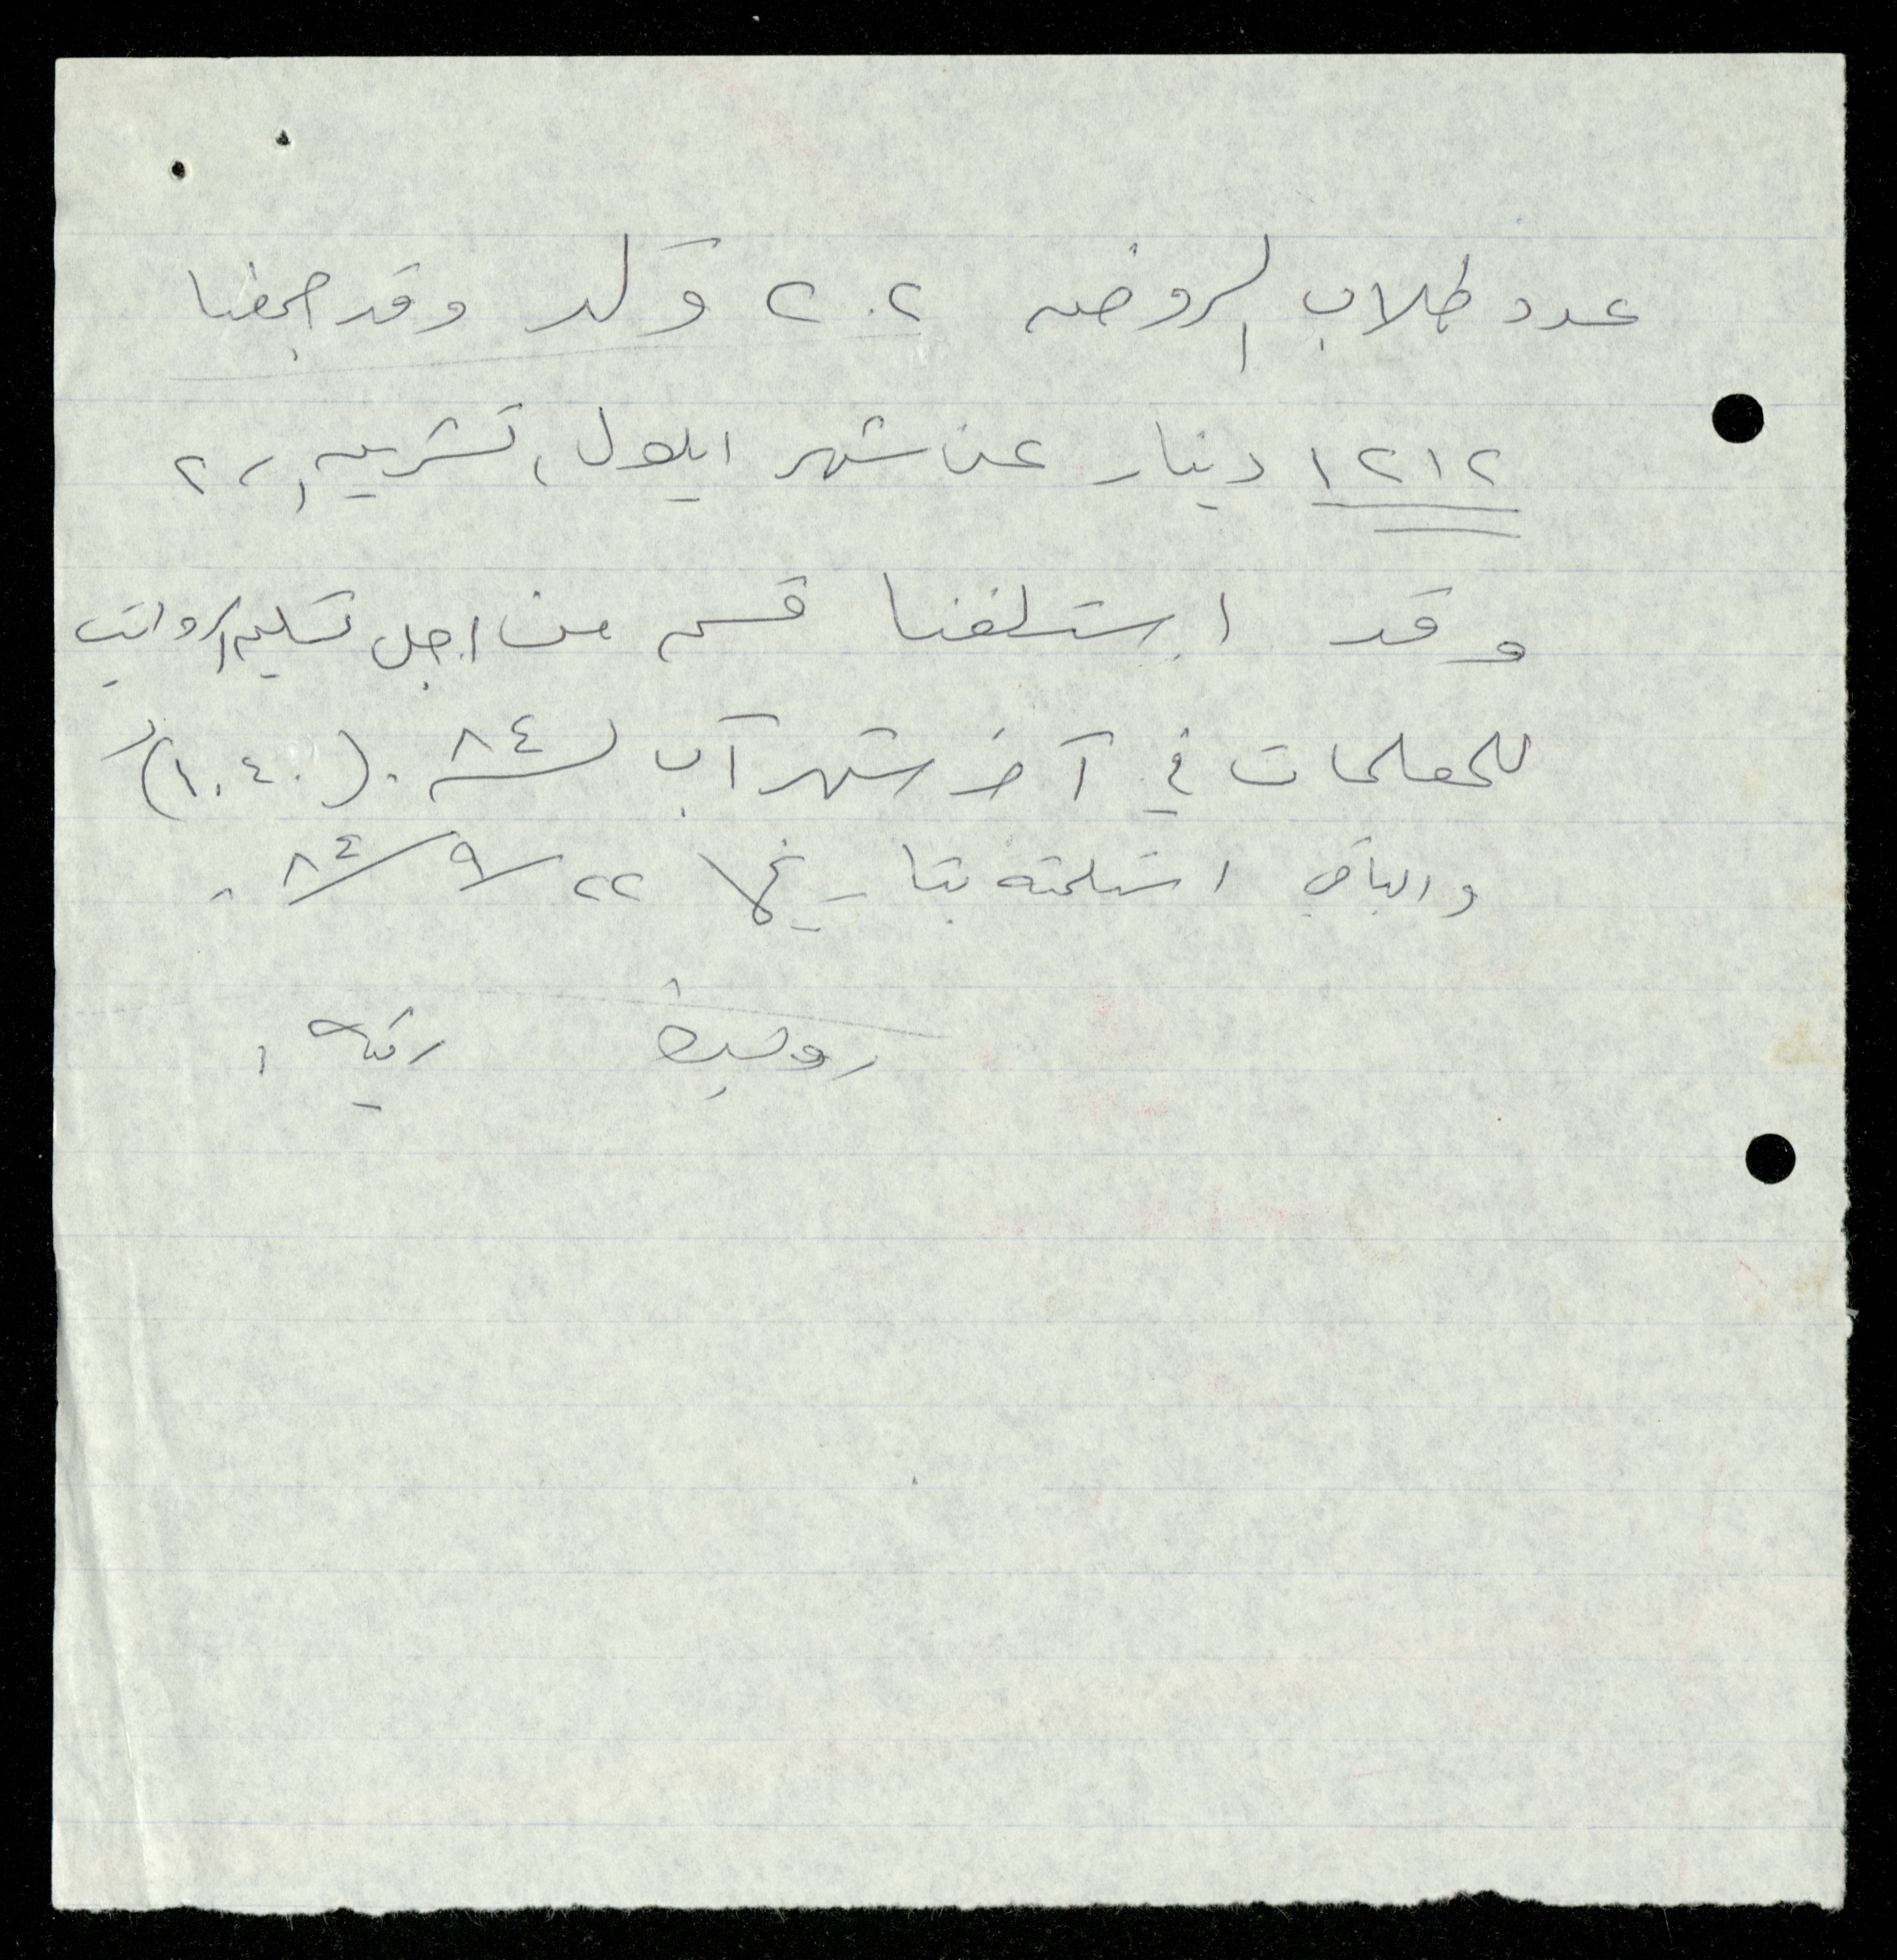 عدد طلاب الروضه ٢٠٢ ولد وقد جمعنا
١٢١٢ دينار عن شهر ايلول، تشرين ١، ٢
وقد استلفنا قسم من اجل تسليم الرواتب
للمعلمات في آخر شهر آب لـ ٨٤. (١٠٤٠)د
والباقي استلمته بتاريخ ٢٢/٩/٨٤.
رقيه